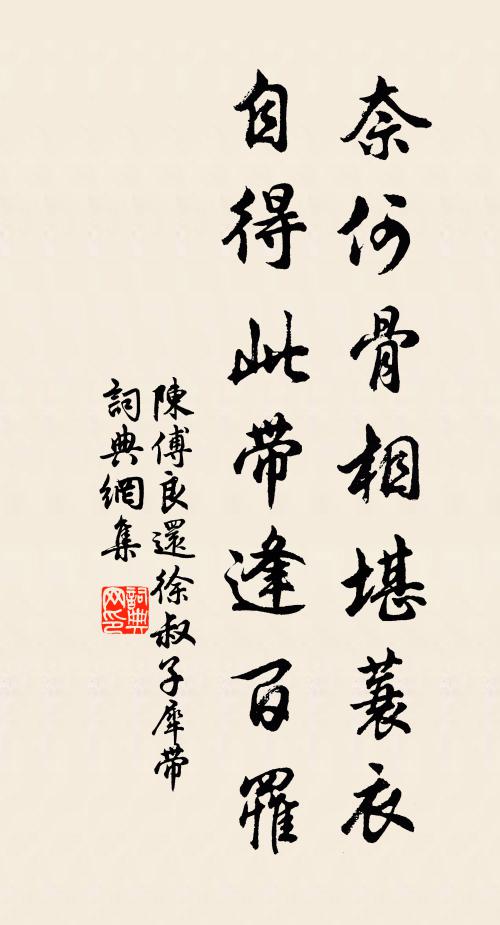 奈何骨相堪蓑衣
自得此帶逢百罹
陳傅良還徐叔子犀帶
詞典網集
詞典网印